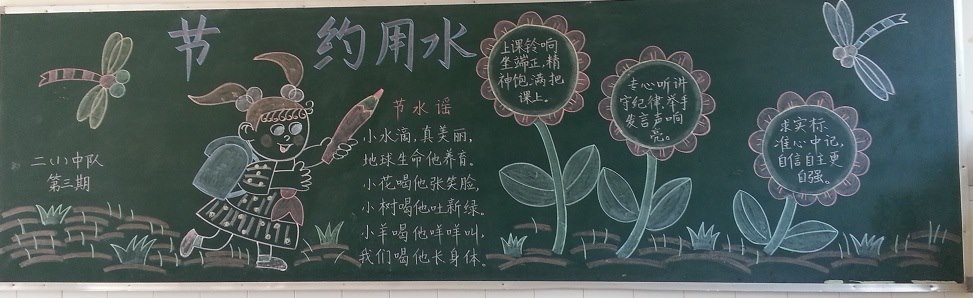 节约用水
二(1)中队
第三期
节水谣
小水滴,真美丽,
地球生命他养育。
小花喝他张笑脸,
小树喝他吐新绿。
小羊喝他咩咩叫,
我们喝他长身体。
上课铃响
坐端正,精
神饱满把
课上。
专心听讲
守纪律,举手
发言声响
亮。
求实标
准心中记,
自信自主更
自强。